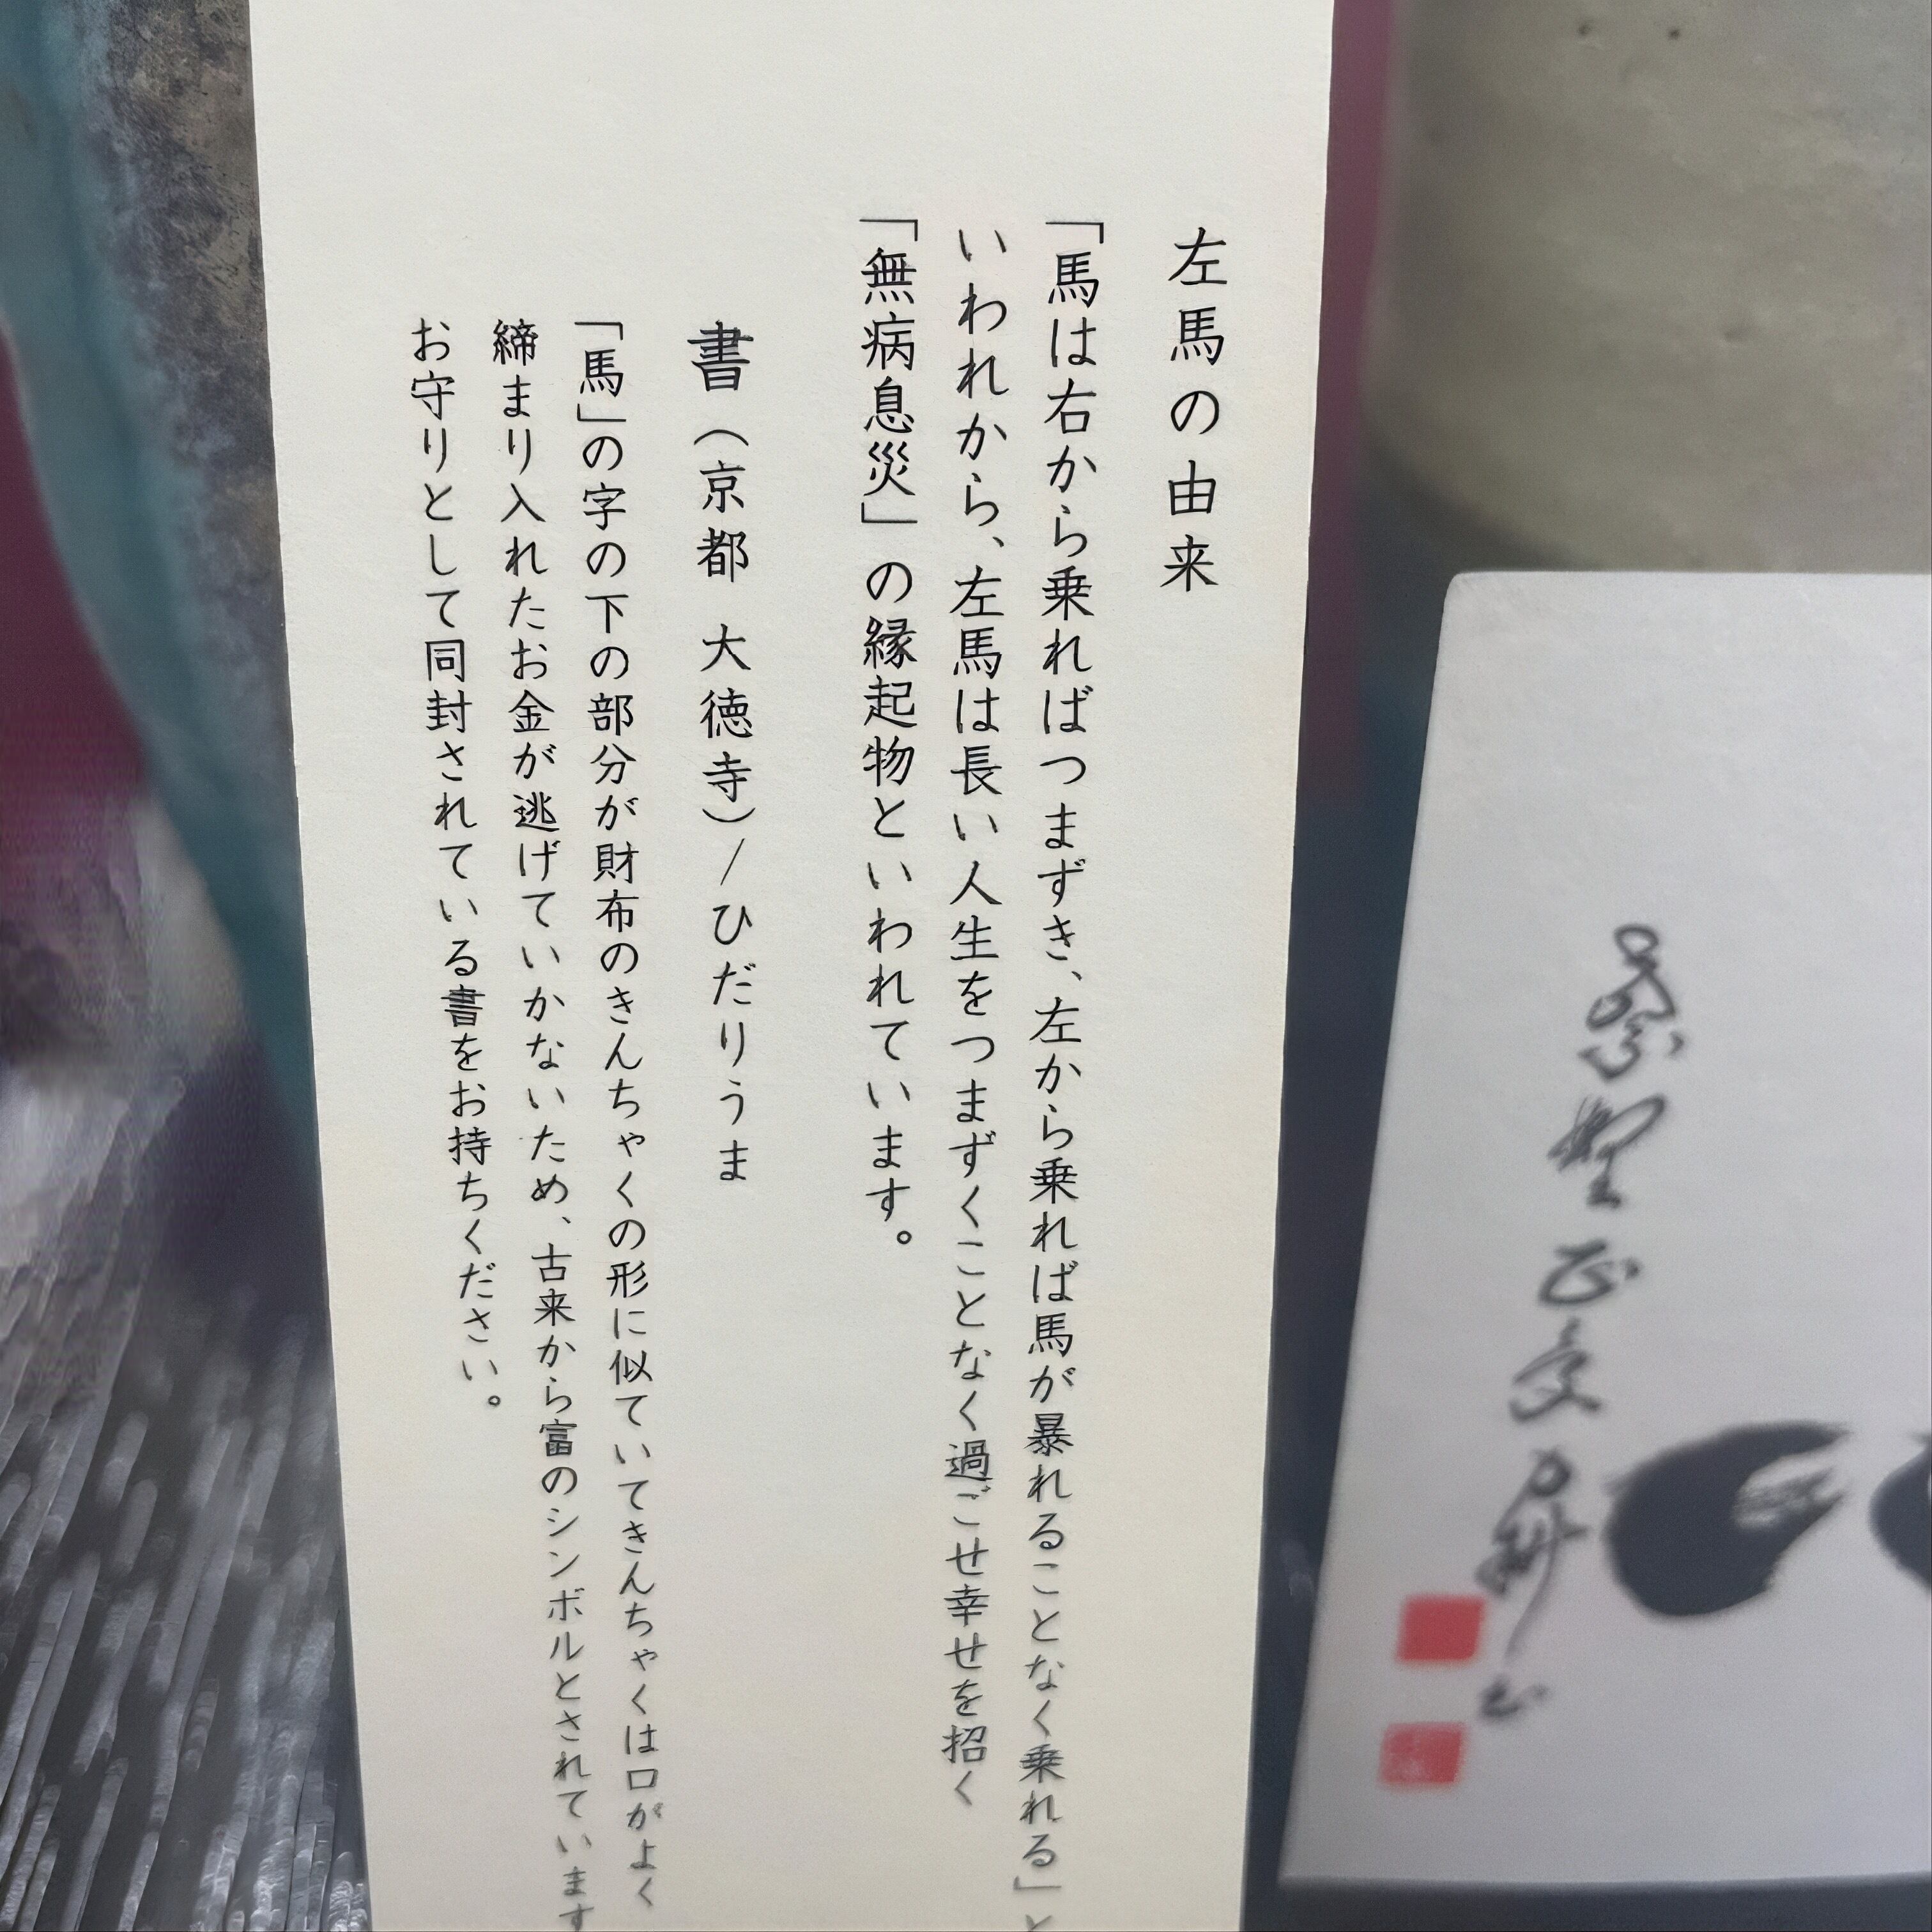 左馬の由来
「馬は右から乗ればつまずき、左から乗れば馬が暴れることなく乗れる」と
いわれから、左馬は長い人生をつまずくことなく過ごせ幸せを招く
「無病息災」の縁起物といわれています。
書（京都 大徳寺）/ひだりうま
「馬」の字の下の部分が財布のきんちゃくの形に似ていてきんちゃくは口がよく
締まり入れたお金が逃げていかないため、古来から富のシンボルとされています
お守りとして同封されている書をお持ちください。